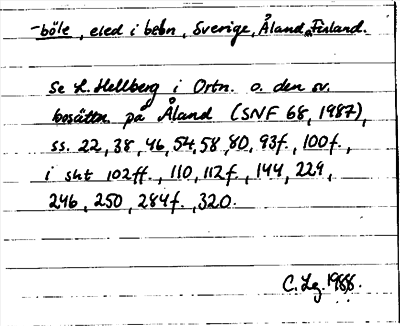 -böle, eled i bebn, Sverige, Åland, Finland.
Se L. Hellberg i Ortn. o. den sv.
bosättn. på Åland (SNF 68, 1987),
ss. 22, 38, 46, 54, 58, 80, 93f., 100f.,
i sht 102ff., 110, 112f., 144, 229,
246, 250, 284f., 320.
C. Lg. 1988.